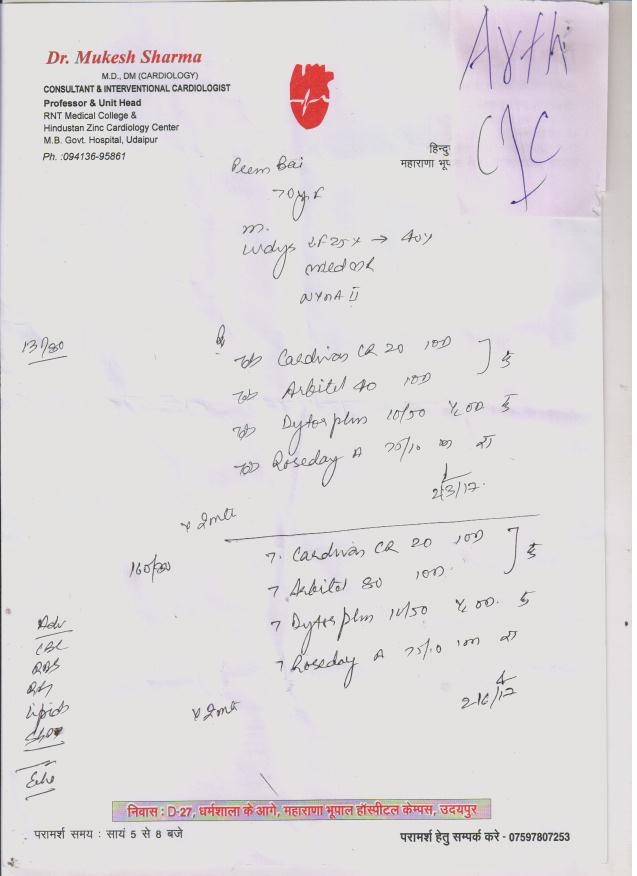 Dr. Mukesh Sharma
M.D., DM (CARDIOLOGY)
CONSULTANT & INTERVENTIONAL CARDIOLOGIST
Professor & Unit Head
RNT Medical College &
Hindustan Zinc Cardiology Center
M.B. Govt. Hospital, Udaipur
Ph. :094136-95861
Arth
हिन्दु
महाराणा भूप
Prem Bai
70yr F
EF 25% → 40%
NYHA II
Tab Cardivas CR 20 1OD
Tab Arbitel 40 1OD
Tab Dytor plus 10/50
Tab Roseday A 75/10
2/3/17
x 2mth
160/80
T. Cardivas CR 20 1OD
T Arbitel 80 1OD
T Dytor plus 10/50
T Roseday A 75/10
Adv
CBC
RBS
Lipids
x 2mth
Echo
निवास : D-27, धर्मशाला के आगे, महाराणा भूपाल हॉस्पीटल केम्पस, उदयपुर
परामर्श समय : सायं 5 से 8 बजे
परामर्श हेतु सम्पर्क करे - 07597807253